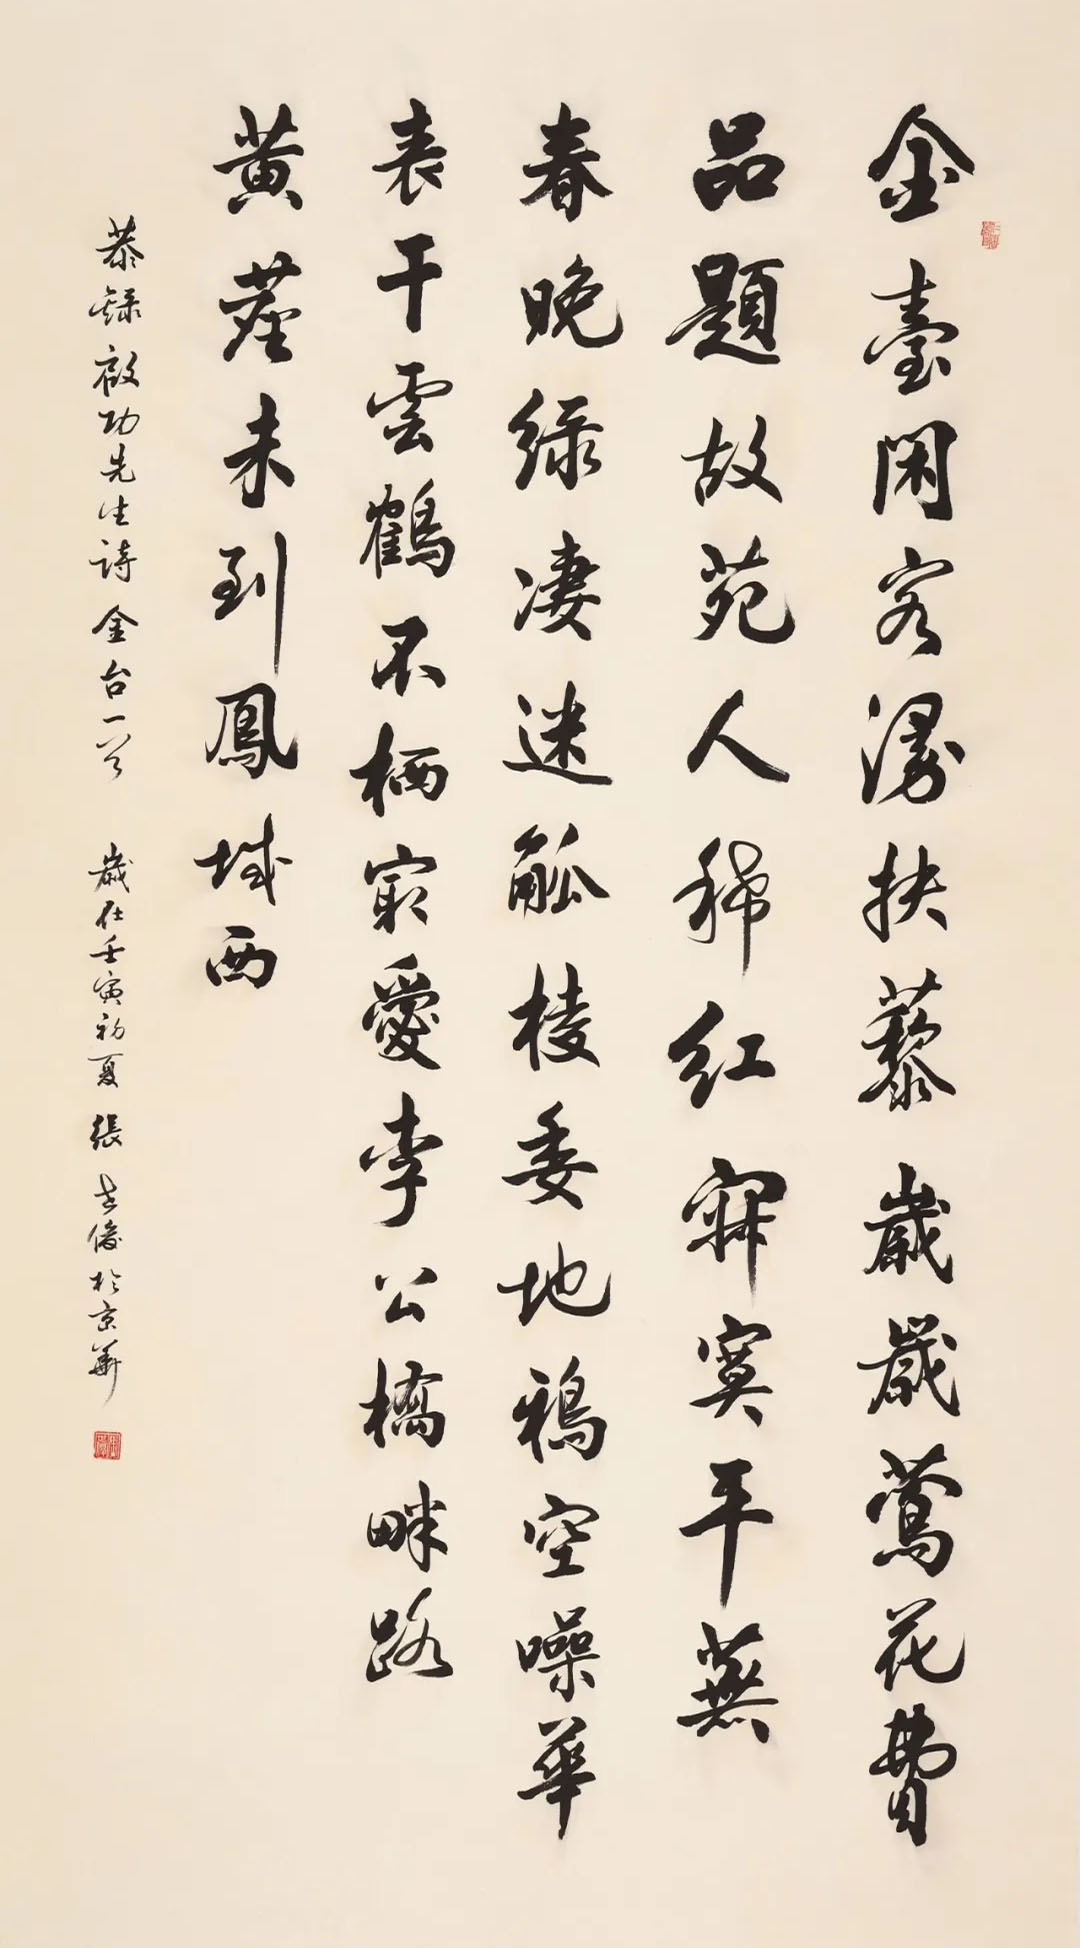 金臺閑客漫扶藜歲歲鶯花費
品題故苑人稀紅寂寞平蕪
春晚绿凄迷觚棱委地鴉空噪華
表干雲鶴不栖窮愛李公橋畔路
黄塵未到鳳城西
恭録啟功先生詩金台一首 歲在壬寅初夏張志俊於京華